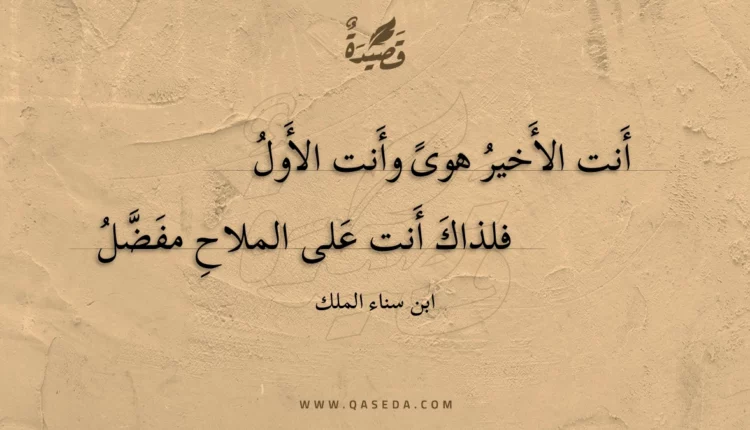 قَصِيْدَةٌ
أَنت الأَخيرُ هوىً وأَنت الأَولُ
فلذاكَ أَنت عَلى الملاحِ مفَضَّلُ
ابن سناء الملك
WWW.QASEDA.COM